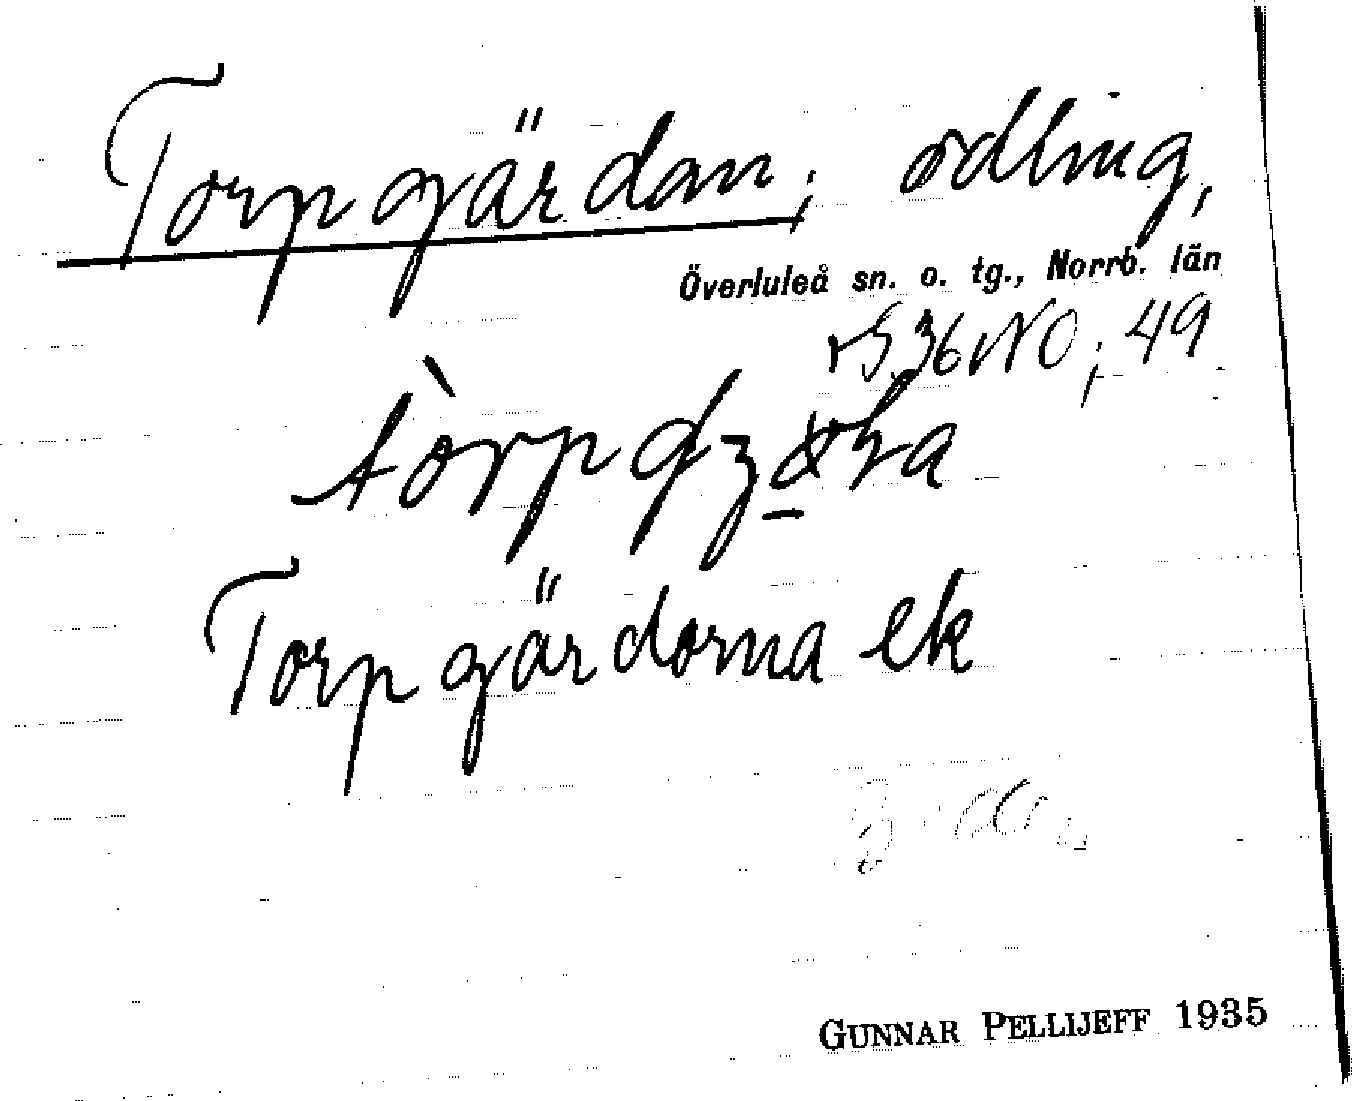 Torpgärdan; odling,
Överluleå sn. o. tg., Norrb. län
36 NO; 49
Torpgärdorna ek
GUNNAR PELLIJEFF 1935